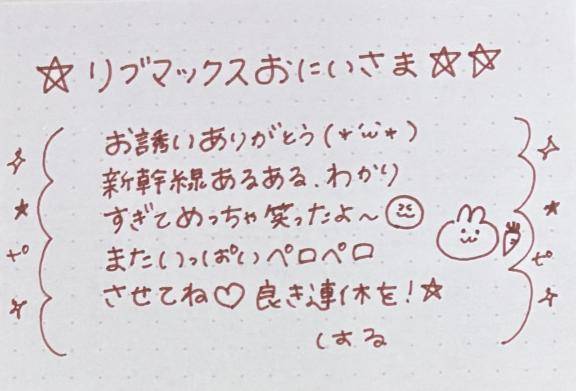 ☆リブマックスおにいさま☆☆
お誘いありがとう(*´ω`*)
新幹線あるある、わかり
すぎてめっちゃ笑ったよ〜
またいっぱいペロペロ
させてね♡良き連休を!★
はる